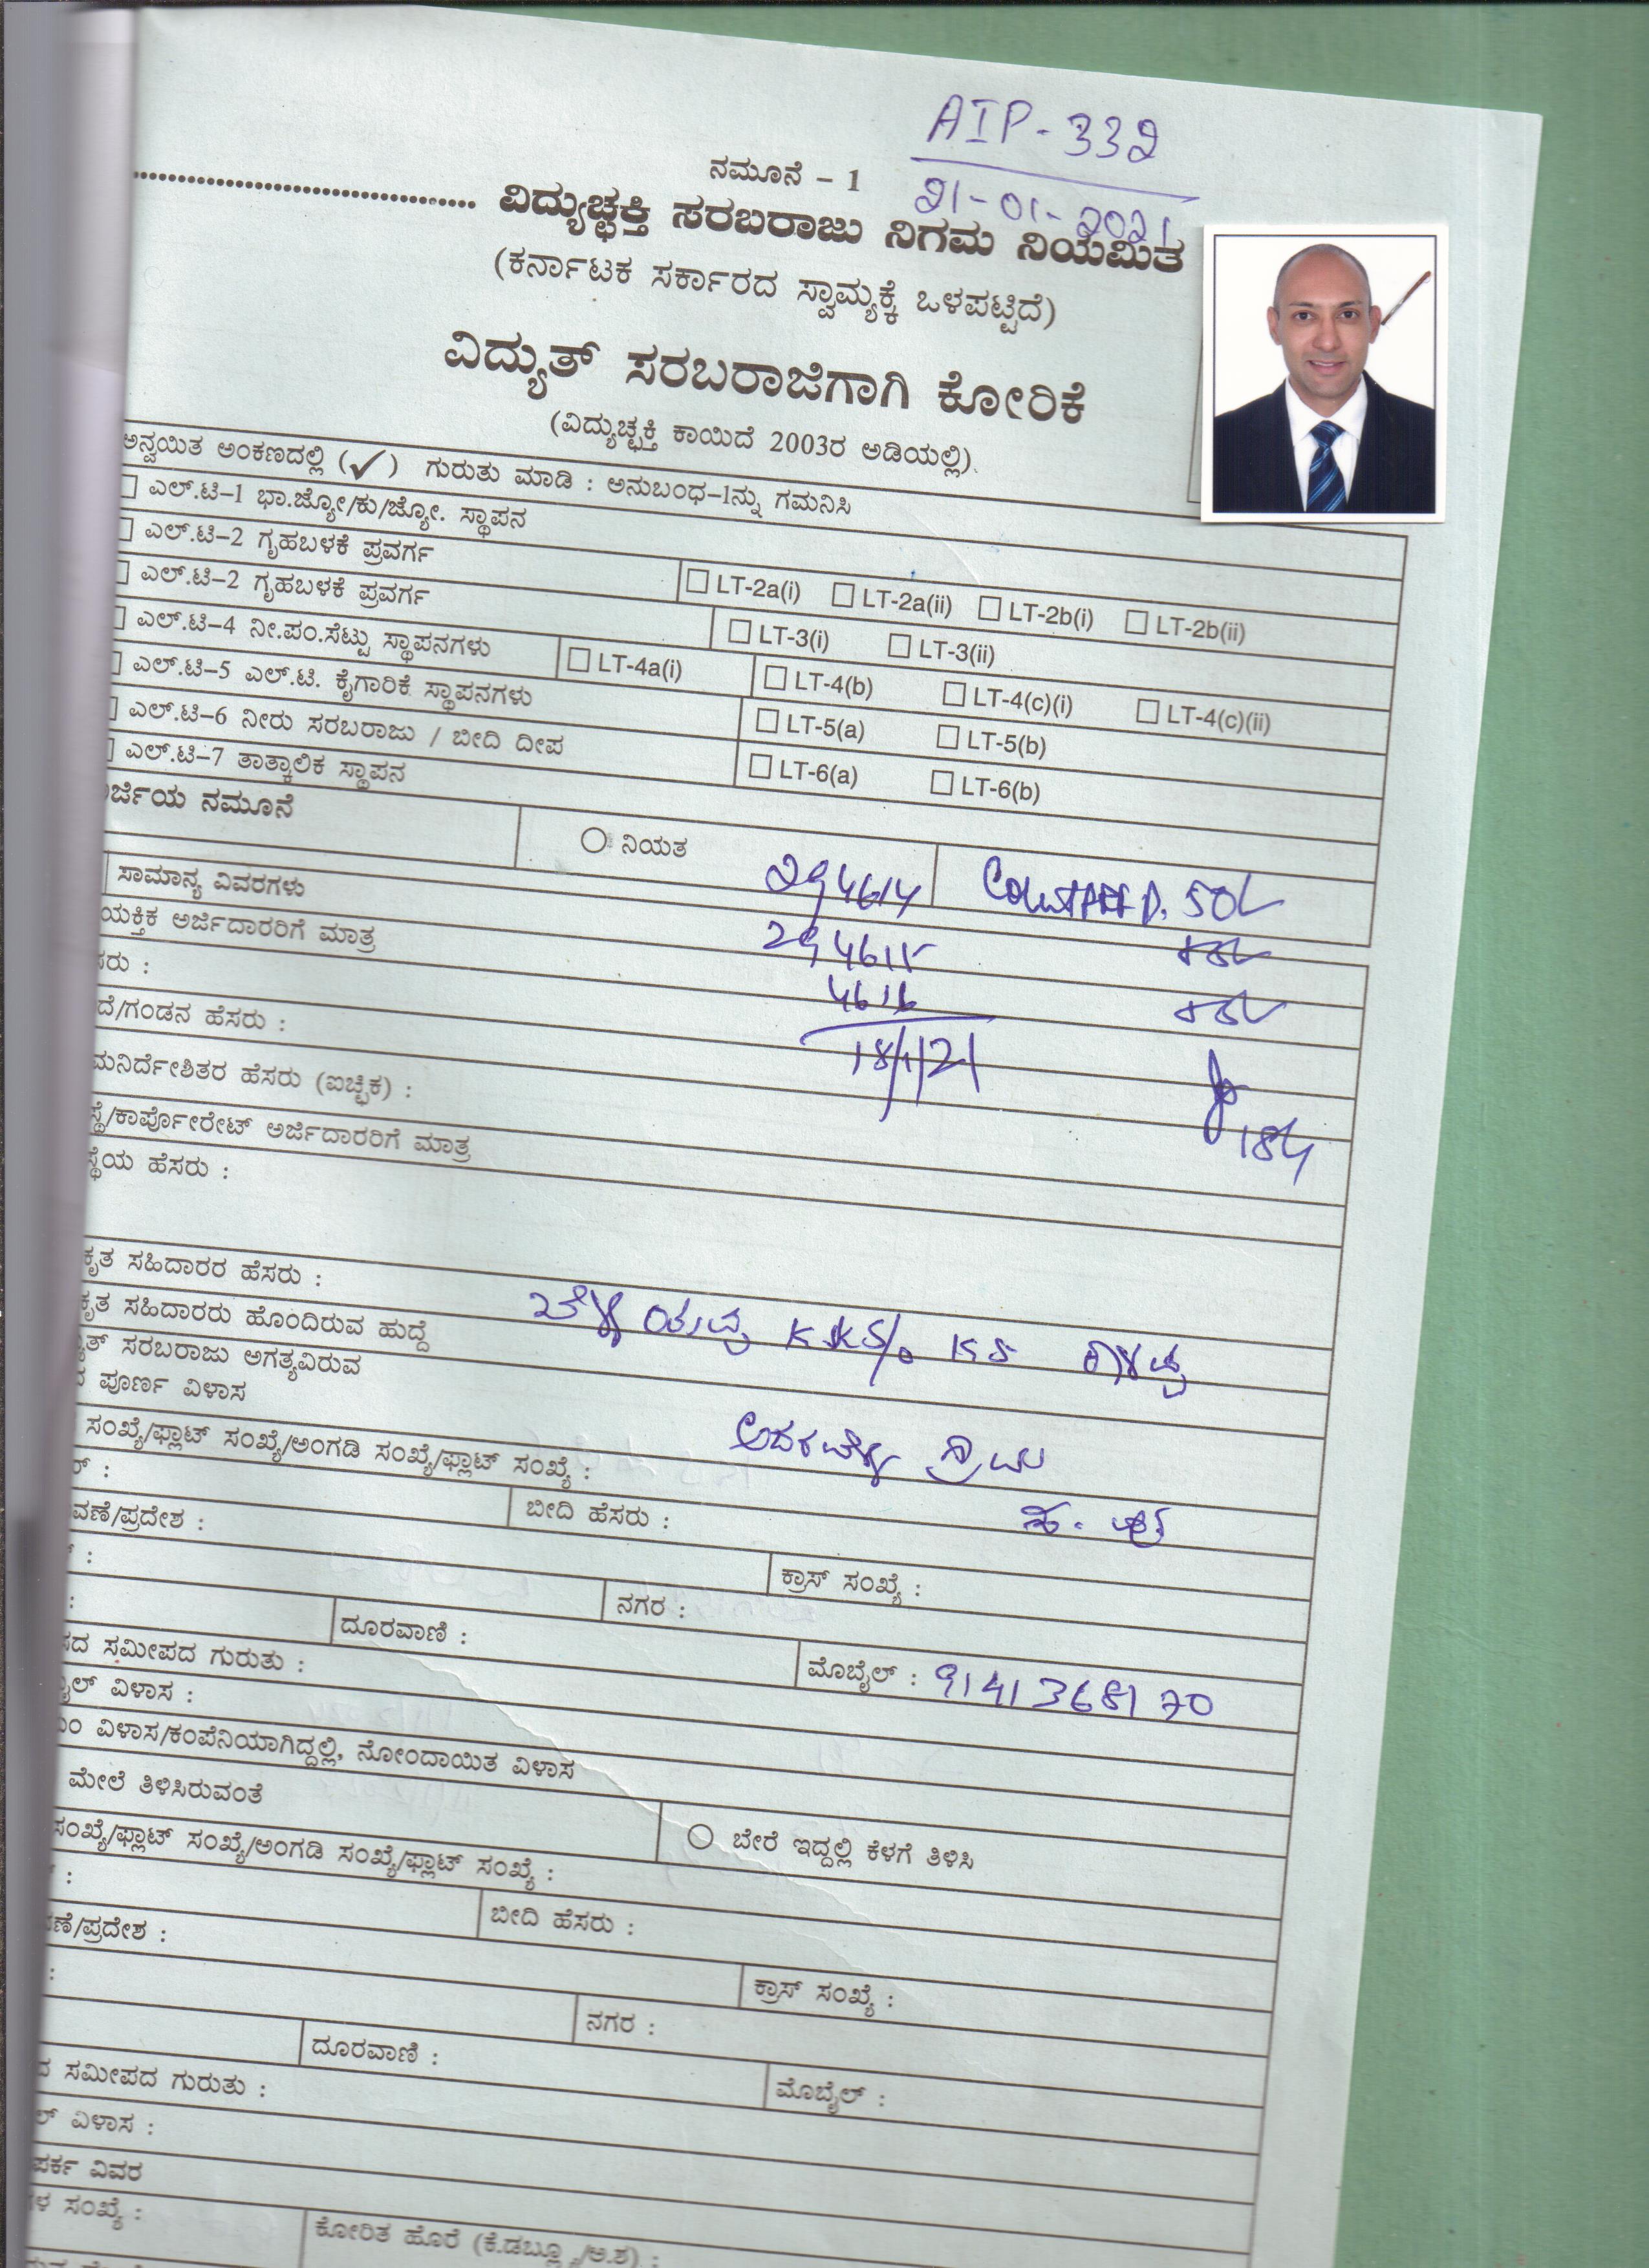 AIP-332
21-01-2021
ನಮೂನೆ – 1
.......................................... ವಿದ್ಯುಚ್ಛಕ್ತಿ ಸರಬರಾಜು ನಿಗಮ ನಿಯಮಿತ
(ಕರ್ನಾಟಕ ಸರ್ಕಾರದ ಸ್ವಾಮ್ಯಕ್ಕೆ ಒಳಪಟ್ಟಿದೆ)
ವಿದ್ಯುತ್ ಸರಬರಾಜಿಗಾಗಿ ಕೋರಿಕೆ
(ವಿದ್ಯುಚ್ಛಕ್ತಿ ಕಾಯಿದೆ 2003ರ ಅಡಿಯಲ್ಲಿ).
ಅನ್ವಯಿತ ಅಂಕಣದಲ್ಲಿ (✓) ಗುರುತು ಮಾಡಿ : ಅನುಬಂಧ–1ನ್ನು ಗಮನಿಸಿ
ಎಲ್.ಟಿ–1 ಭಾ.ಜ್ಯೋ/ಕು/ಜ್ಯೋ. ಸ್ಥಾಪನ
ಎಲ್.ಟಿ–2 ಗೃಹಬಳಕೆ ಪ್ರವರ್ಗ LT-2a(i) LT-2a(ii) LT-2b(i) LT-2b(ii)
ಎಲ್.ಟಿ–2 ಗೃಹಬಳಕೆ ಪ್ರವರ್ಗ LT-3(i) LT-3(ii)
ಎಲ್.ಟಿ–4 ನೀ.ಪಂ.ಸೆಟ್ಟು ಸ್ಥಾಪನಗಳು LT-4a(i) LT-4(b) LT-4(c)(i) LT-4(c)(ii)
ಎಲ್.ಟಿ–5 ಎಲ್.ಟಿ. ಕೈಗಾರಿಕೆ ಸ್ಥಾಪನಗಳು LT-5(a) LT-5(b)
ಎಲ್.ಟಿ–6 ನೀರು ಸರಬರಾಜು / ಬೀದಿ ದೀಪ LT-6(a) LT-6(b)
ಎಲ್.ಟಿ–7 ತಾತ್ಕಾಲಿಕ ಸ್ಥಾಪನ
ರ್ಜಿಯ ನಮೂನೆ ನಿಯತ
ಸಾಮಾನ್ಯ ವಿವರಗಳು 294614
ಯಕ್ತಿಕ ಅರ್ಜಿದಾರರಿಗೆ ಮಾತ್ರ 294615
ಸರು : 4616
ದೆ/ಗಂಡನ ಹೆಸರು : 18/1/21
ಮನಿರ್ದೇಶಿತರ ಹೆಸರು (ಐಚ್ಛಿಕ) :
ಸ್ಥೆ/ಕಾರ್ಪೊರೇಟ್ ಅರ್ಜಿದಾರರಿಗೆ ಮಾತ್ರ
ಸ್ಥೆಯ ಹೆಸರು :
ಕೃತ ಸಹಿದಾರರ ಹೆಸರು :
ಕೃತ ಸಹಿದಾರರು ಹೊಂದಿರುವ ಹುದ್ದೆ
ತ್ ಸರಬರಾಜು ಅಗತ್ಯವಿರುವ
ದ ಪೂರ್ಣ ವಿಳಾಸ
ಸಂಖ್ಯೆ/ಫ್ಲಾಟ್ ಸಂಖ್ಯೆ/ಅಂಗಡಿ ಸಂಖ್ಯೆ/ಫ್ಲಾಟ್ ಸಂಖ್ಯೆ :
ರ್ : ಬೀದಿ ಹೆಸರು :
ವಣೆ/ಪ್ರದೇಶ : ಕ್ರಾಸ್ ಸಂಖ್ಯೆ :
: ನಗರ :
: ದೂರವಾಣಿ : ಮೊಬೈಲ್ : 9141368170
ಸದ ಸಮೀಪದ ಗುರುತು :
ೈಲ್ ವಿಳಾಸ :
ಂ ವಿಳಾಸ/ಕಂಪೆನಿಯಾಗಿದ್ದಲ್ಲಿ, ನೋಂದಾಯಿತ ವಿಳಾಸ
ಮೇಲೆ ತಿಳಿಸಿರುವಂತೆ ಬೇರೆ ಇದ್ದಲ್ಲಿ ಕೆಳಗೆ ತಿಳಿಸಿ
ಸಂಖ್ಯೆ/ಫ್ಲಾಟ್ ಸಂಖ್ಯೆ/ಅಂಗಡಿ ಸಂಖ್ಯೆ/ಫ್ಲಾಟ್ ಸಂಖ್ಯೆ :
: ಬೀದಿ ಹೆಸರು :
ವಣೆ/ಪ್ರದೇಶ : ಕ್ರಾಸ್ ಸಂಖ್ಯೆ :
: ನಗರ :
ದೂರವಾಣಿ : ಮೊಬೈಲ್ :
ದ ಸಮೀಪದ ಗುರುತು :
ಲ್ ವಿಳಾಸ :
ಪರ್ಕ ವಿವರ
ಗಳ ಸಂಖ್ಯೆ : ಕೋರಿತ ಹೊರೆ (ಕೆ.ಡಬ್ಲ್ಯೂ/ಅ.ಶ) :